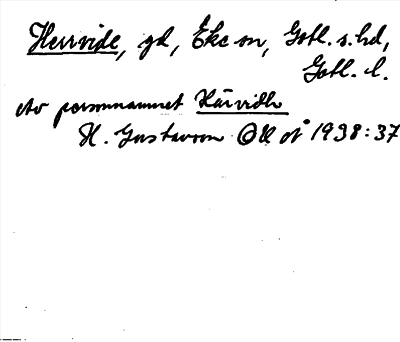 Herrvide, gd, Eke sn, Gotl. s. hd,
Gotl. l.
Av personnamnet Härvidh
H. Gustavson OGl oÅ 1938:37